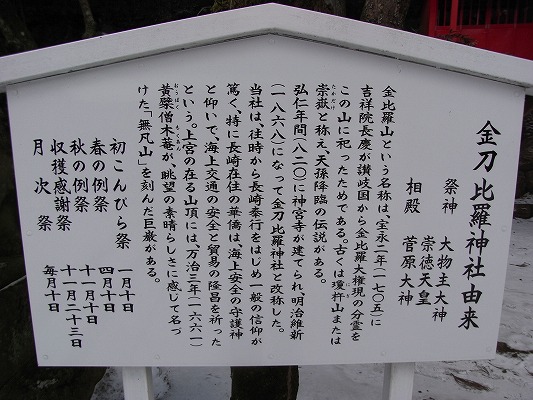 金刀比羅神社由来
祭神 大物主大神
崇徳天皇
相殿 菅原大神
金比羅山という名称は、宝永二年(一七〇五)に
吉祥院長慶が讃岐国から金比羅大権現の分霊を
この山に祀ったためである。古くは瓊杵山または
崇嶽と称え、天孫降臨の伝説がある。
たかだけ
弘仁年間(八二〇)に神宮寺が建てられ、明治維新
(一八六八)になって金刀比羅神社と改称した。
当社は、往時から長崎奉行をはじめ一般の信仰が
篤く、特に長崎在住の華僑は、海上安全の守護神
と仰いで、海上交通の安全と貿易の隆昌を祈った
という。上宮の在る山頂には、万治三年(一六六一)
黄檗僧木菴が、眺望の素晴らしさに感じて名づ
おうばく もくあん
けた「無凡山」を刻んだ巨巌がある。
初こんぴら祭 一月十日
春の例祭 四月十日
秋の例祭 十月十日
収穫感謝祭 十一月二十三日
月次祭 毎月十日